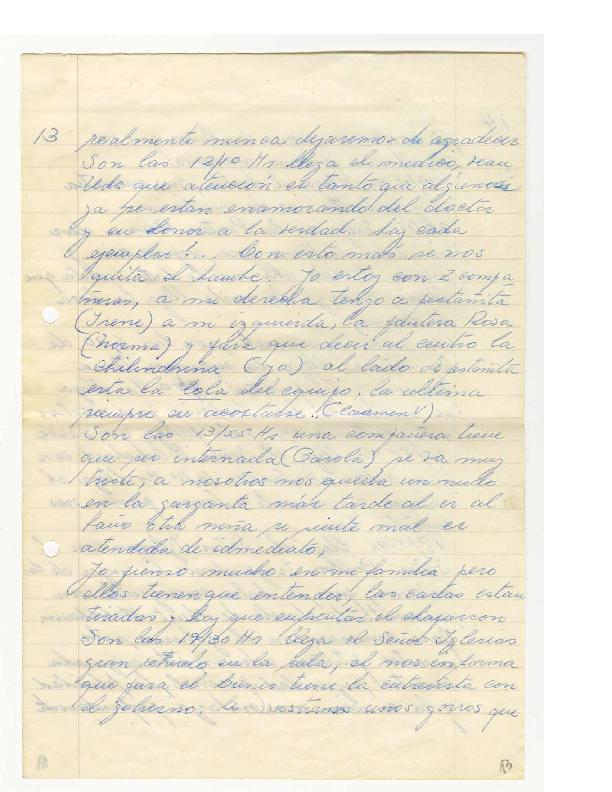 13
realmente nunca dejaremos de agradecer
Son las 12/10 Hr llega el medico, vean
Uds que atención es tanto que algunas
ya se estan enamorando del doctor
y en honor a la verdad hay cada
ejemplar!.. Con esto mas se nos
quita el hambre. Yo estoy con 2 compa
ñeras, a mi derecha tengo a pestañita
(Irene) a mi izquierda, la pantera Rosa
(Norma) y para que decir al centro la
chilindrina (Yo) al lado de pestañita
esta la cola del equipo, la ultima
siempre en acostarse. (Carmen V)
Son las 13/55 Hr una compañera tiene
que ser internada (Carola) se va muy
triste, a nosotros nos queda un nudo
en la garganta más tarde al ir al
baño otra niña se siente mal es
atendida de idmediato,
Yo pienso mucho en mi familia pero
ellos tienen que entender, las cartas estan
tiradas y hay que enfrentar el chaparron
Son las 19/30 Hr llega el Señor Iglesias
gran revuelo en la sala, el nos informa
que para el lunes tiene la entrevista con
el gobierno, le unos gorros que